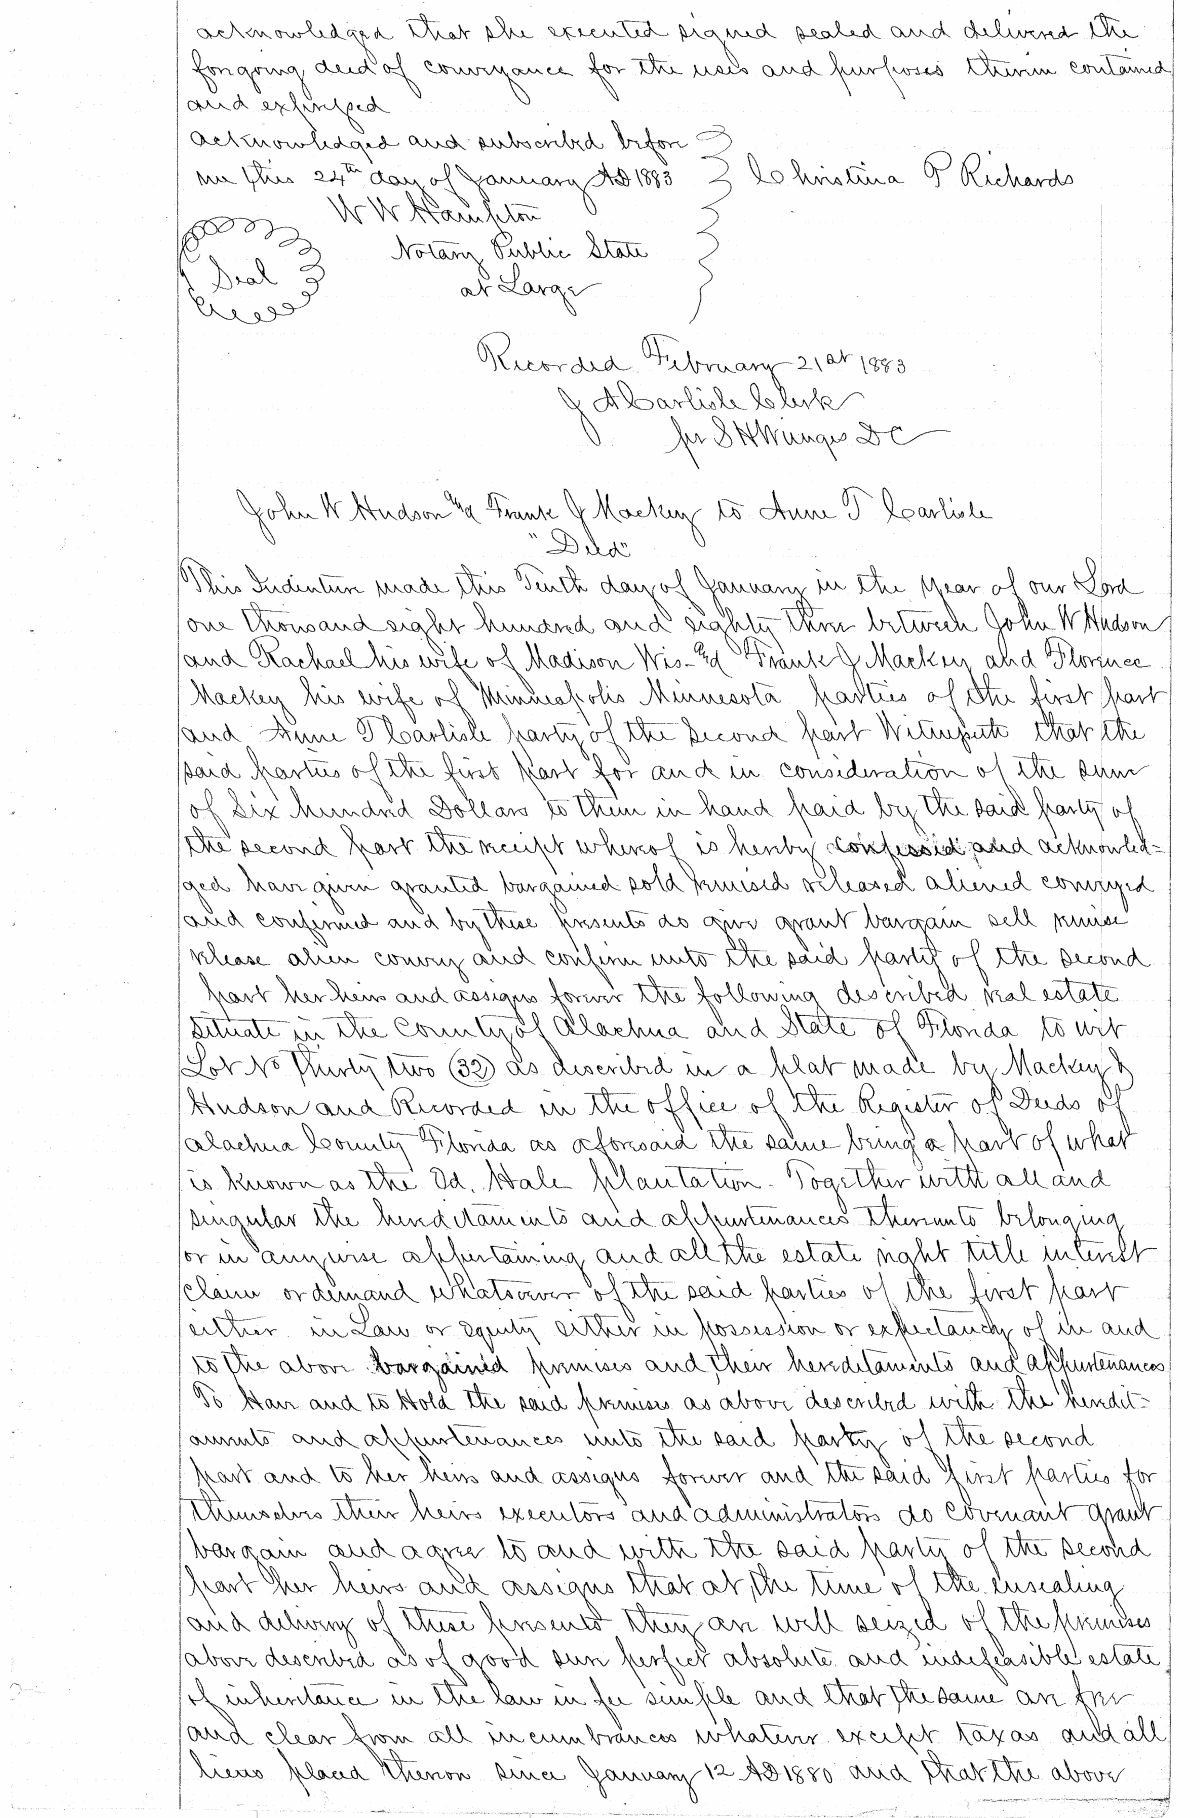 acknowledged that she executed signed sealed and delivered the
foregoing deed of conveyance for the uses and purposes therein contained
and expressed
acknowledged and subscribed before
me this 24th day of January AD 1883 Christina P Richards
W W Hampton
Notary Public State
at Large
Seal
Recorded February 21st 1883
J A Carlisle Clerk
per S H Wienges DC
John W Hudson & Frank J Mackey to Anne T Carlisle
"Deed"
This Indenture made this Tenth day of January in the Year of our Lord
one thousand eight hundred and eighty three between John W Hudson
and Rachael his wife of Madison Wis- & Frank J Mackey and Florence
Mackey his wife of Minneapolis Minnesota parties of the first part
and Anne T Carlisle party of the second part Witnesseth that the
said parties of the first part for and in consideration of the sum
of Six hundred Dollars to them in hand paid by the said party of
the second part the receipt whereof is hereby confessed and acknowled=
ged have given granted bargained sold remised released aliened conveyed
and confirmed and by these presents do give grant bargain sell remise
release alien convey and confirm unto the said party of the second
part her heirs and assigns forever the following described real estate
situate in the County of Alachua and State of Florida to wit
Lot No Thirty two (32) as described in a plat made by Mackey &
Hudson and Recorded in the office of the Register of Deeds of
Alachua County Florida as aforesaid the same being a part of what
is known as the Ed. Hale plantation. Together with all and
singular the hereditaments and appurtenances thereunto belonging
or in anywise appertaining and all the estate right title interest
claim or demand whatsoever of the said parties of the first part
either in Law or equity either in possession or expectancy of in and
to the above bargained premises and their hereditaments and appurtenances
To Have and to Hold the said premises as above described with the heredit=
aments and appurtenances unto the said party of the second
part and to her heirs and assigns forever and the said first parties for
themselves their heirs executors and administrators do covenant grant
bargain and agree to and with the said party of the second
part her heirs and assigns that at the time of the ensealing
and delivery of these presents they are well seized of the premises
above described as of good sure perfect absolute and indefeasible estate
of inheritance in the law in fee simple and that the same are free
and clear from all incumbrances whatever except taxas and all
liens placed thereon since January 12 AD 1880 and that the above